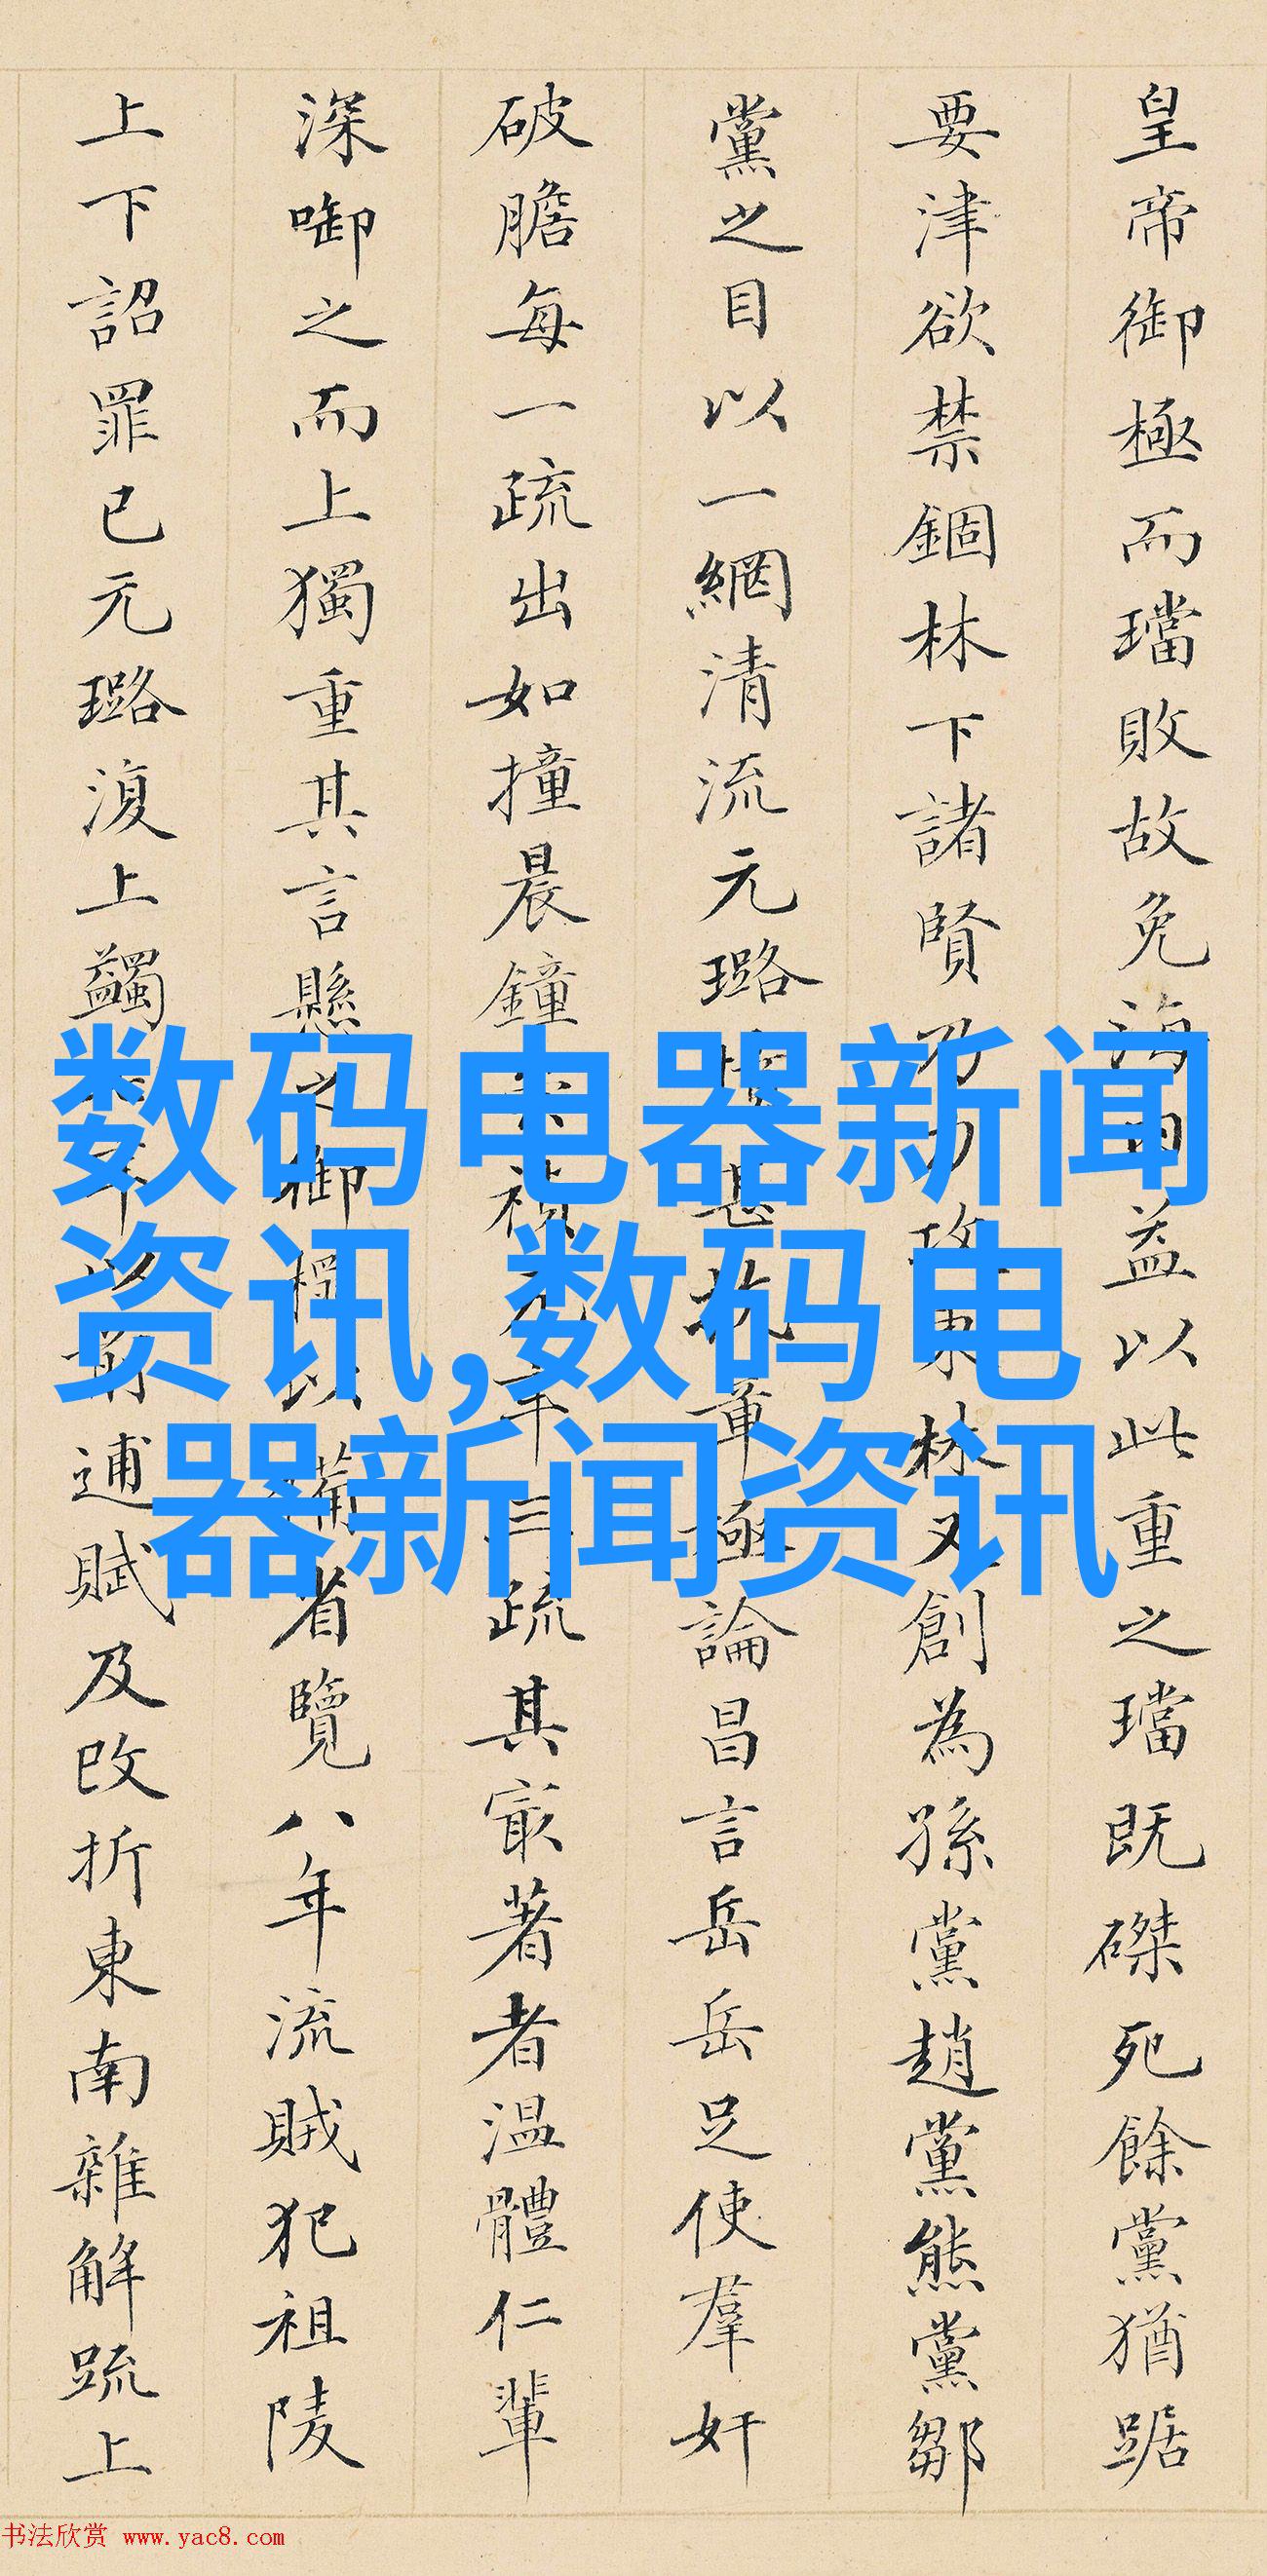 皇帝御極而璫敗故免海內益以此重之璫既磔死餘黨猶踞
要津欲禁錮林下諸賢乃力攻東林又創為孫黨趙黨熊黨鄒
黨之目以一網清流元璐抗章極論昌言岳岳足使羣奸
破膽每一疏出如撞晨鐘禎元年三疏其㝡著者溫體仁輩
深啣之而上獨重其言懸之御以備省覽八年流賊犯祖陵
上下詔罪已元璐復上蠲年以前逋賦及改折東南雜解疏上
数码电器新闻
资讯,数码电
器新闻资讯
书法欣赏 www.yac8.com